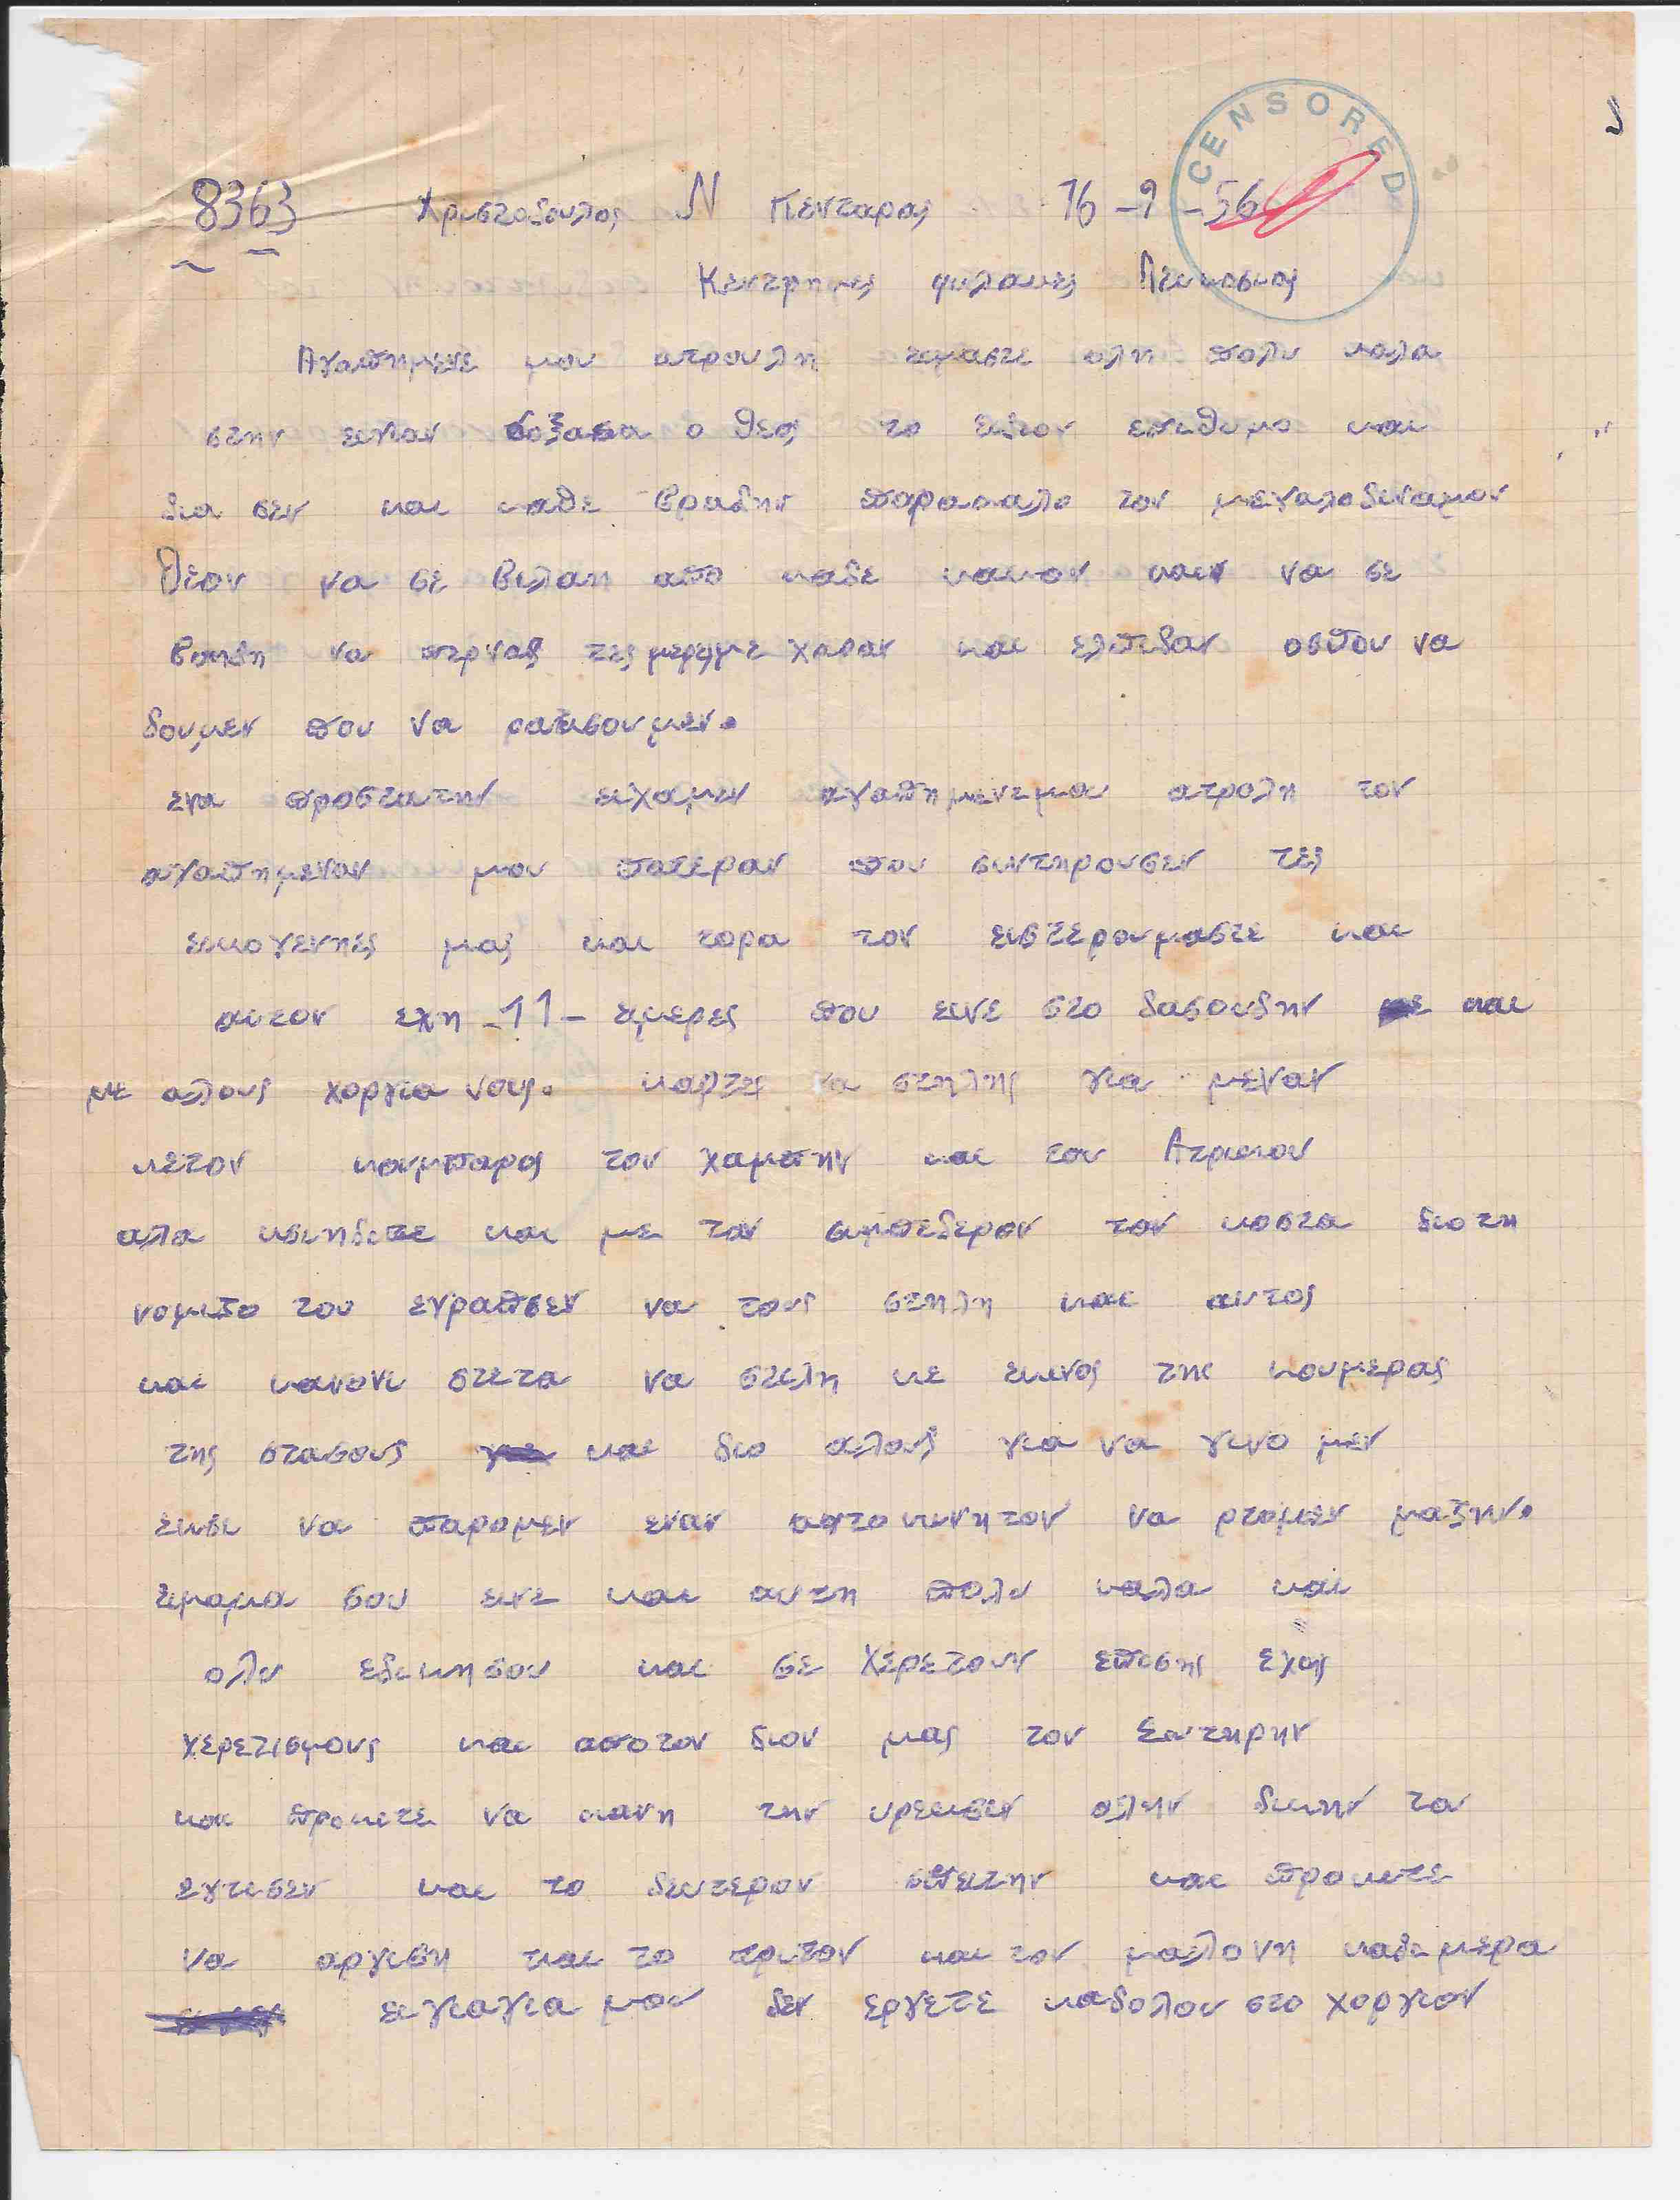 CENSORED
8363 Χριστοδουλος Ν Πενταρας 16-9-56
Κεντρηκες φιλακες Λευκοσιας
Αγαπημενε μου ατρουλη ειμαστε ολη πολυ καλα
στην ειγιαν δοξασια ο θεος το ειδιον επιθυμο και
δια σεν και καθε βραδην παρακαλο τον μεγαλοδιναμον
θεον να σε βιλαη απο καθε κακον κιεν να σε
βοηδη να περνας τες μερες με χαραν και ελπιδαν οσπου να
δουμεν που να ραξισουμεν.
ενα προστατην ειχαμεν αγαπημενεμου ατρολη τον
αγαπημεναν μου πατεραν που σιντηρουσεν τες
εικογενηες μας και τορα τον ειστερουμαστε και
αυτον εχη -11- ειμερες που εινε στο δασουδην και
με αλους χοργιανους. καρτες να στηλης για μεναν
κετον κουμπαρος τον χαμπην και τον Ατρικον
αλα και με τον σιμπεδερον τον κοστα διοτη
νομιζο του εγραπσεν να τους στηλη και αυτος
και κανονι στετα να στιλη κε εκινος της κουμερας
της στασους και διο αλους για να γινο μεν
εικσι να παρομεν εναν αφτοκινητον να ρτομεν μαζην.
ειμαμα σου εινε και αυτη πολυ καλα και
ολυ εδικησου και σε χερετουν επισης εχης
χερετισμους και αποτον διον μας τον Σοτηρην
και προκιτε να κανη την αλην δικην το
εγτισεν και το δευτερον σπειτην και προκιτε
να αργιση και το τριτον και τον μαλονη καθεμερα
ειγιαγια μου δεν εργετε καδολου στο χοργιον